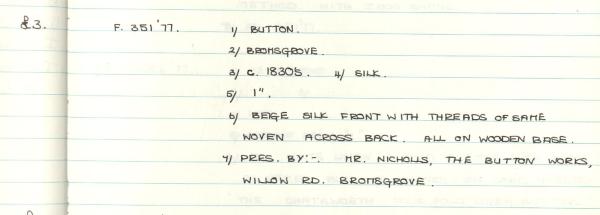 £3. F. 351 '77. 1/ BUTTON.
2/ BROMSGROVE.
3/ C. 1830'S. 4/ SILK.
5/ 1".
6/ BEIGE SILK FRONT WITH THREADS OF SAME
WOVEN ACROSS BACK. ALL ON WOODEN BASE.
7/ PRES. BY:-. MR. NICHOLLS, THE BUTTON WORKS,
WILLOW RD. BROMSGROVE.